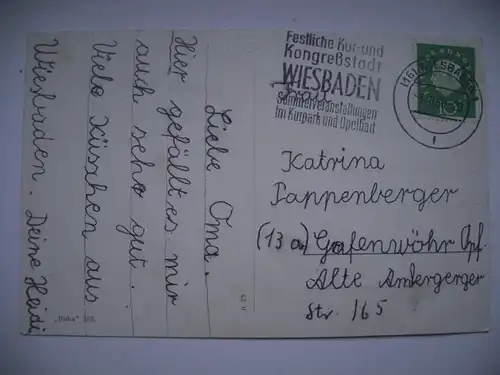 Liebe Oma.
Hier gefällt es mir
auch sehr gut.
Viele Küsschen aus
Wiesbaden. Deine Heidi
Festliche Kur-und
Kongreßstadt
WIESBADEN
Sommerveranstaltungen
im Kurpark und Opelbad
(16) WIESBADEN 1
f
Frau
Katrina
Pappenberger
(13 a) Gafenwöhr Opf.
Alte Ambergerger
Str. 165